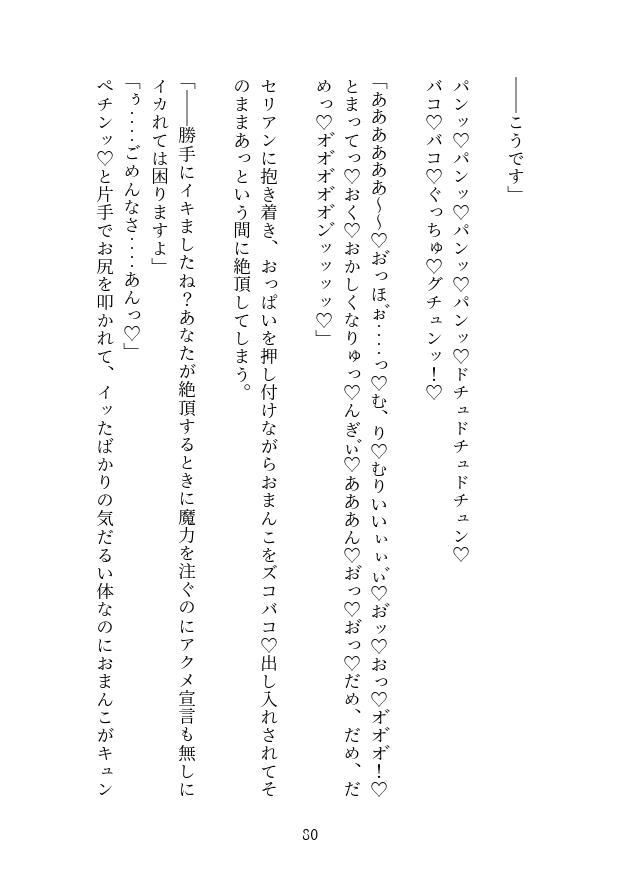 ――こうです」
パンッ♡パンッ♡パンッ♡パンッ♡ドチュドチュドチュン♡
バコ♡バコ♡ぐっちゅ♡グチュンッ！♡
「ああああああ～～♡お゛っほぉ゛････っ♡む、り♡むりいいぃぃぃ゛♡お゛ッ♡おっ♡オ゛オ゛オ゛！♡
とまってっ♡おく♡おかしくなりゅっ♡んぎぃ゛♡あああん♡お゛っ♡お゛っ♡だめ、だめ、だ
めっ♡オ゛オ゛オ゛オ゛オ゛ン゛ッッッッ♡」
セリアンに抱き着き、おっぱいを押し付けながらおまんこをズコバコ♡出し入れされてそ
のままあっという間に絶頂してしまう。
「――勝手にイキましたね？あなたが絶頂するときに魔力を注ぐのにアクメ宣言も無しに
イカれては困りますよ」
「ぅ････ごめんなさ････あんっ♡」
ペチンッ♡と片手でお尻を叩かれて、イッたばかりの気だるい体なのにおまんこがキュン
80